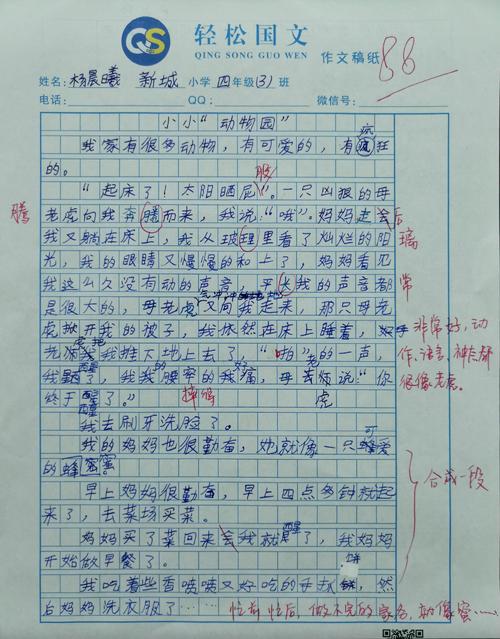 QS 轻松国文
QING SONG GUO WEN
作文稿纸 86
姓名 杨晨曦 新城 小学 四 年级(3)班
电话： QQ： 微信号：
小小"动物园"
我家有很多动物，有可爱的，有疯狂
的。
"起床了！太阳晒屁股"。一只凶狠的母
老虎向我奔腾而来，我说"哦"。妈妈走后
腾
我又躺在床上，我从玻璃里看了灿烂的阳
璃
光，我的眼睛又慢慢的和上了，妈妈看见
我这么久没有动的声音，平长我的声音都
常
是很大的，母老虎气冲冲地又向我走来，那只母老
虎掀开我的被子，我依然在床上睡着，
非常好，动
作、语言、神态都
很像老虎。
我推下地上去了，"啪"的一声，
我醒了，我的腰密的好痛，母老师说"你
虎
终于醒了。"
摔得
我去刷牙洗脸了。
我的妈妈也很勤奋，她就像一只可爱
的蜜蜂
早上妈妈很勤奋，早上四点多钟就起
合成一段
来了，去菜场买菜。
妈妈买了菜回来我就醒了，我妈妈
开始做早餐了。
我吃着些香喷喷又好吃的母饼，然
后妈妈洗衣服了……
忙前忙后，做不完的家务，就像蜜……